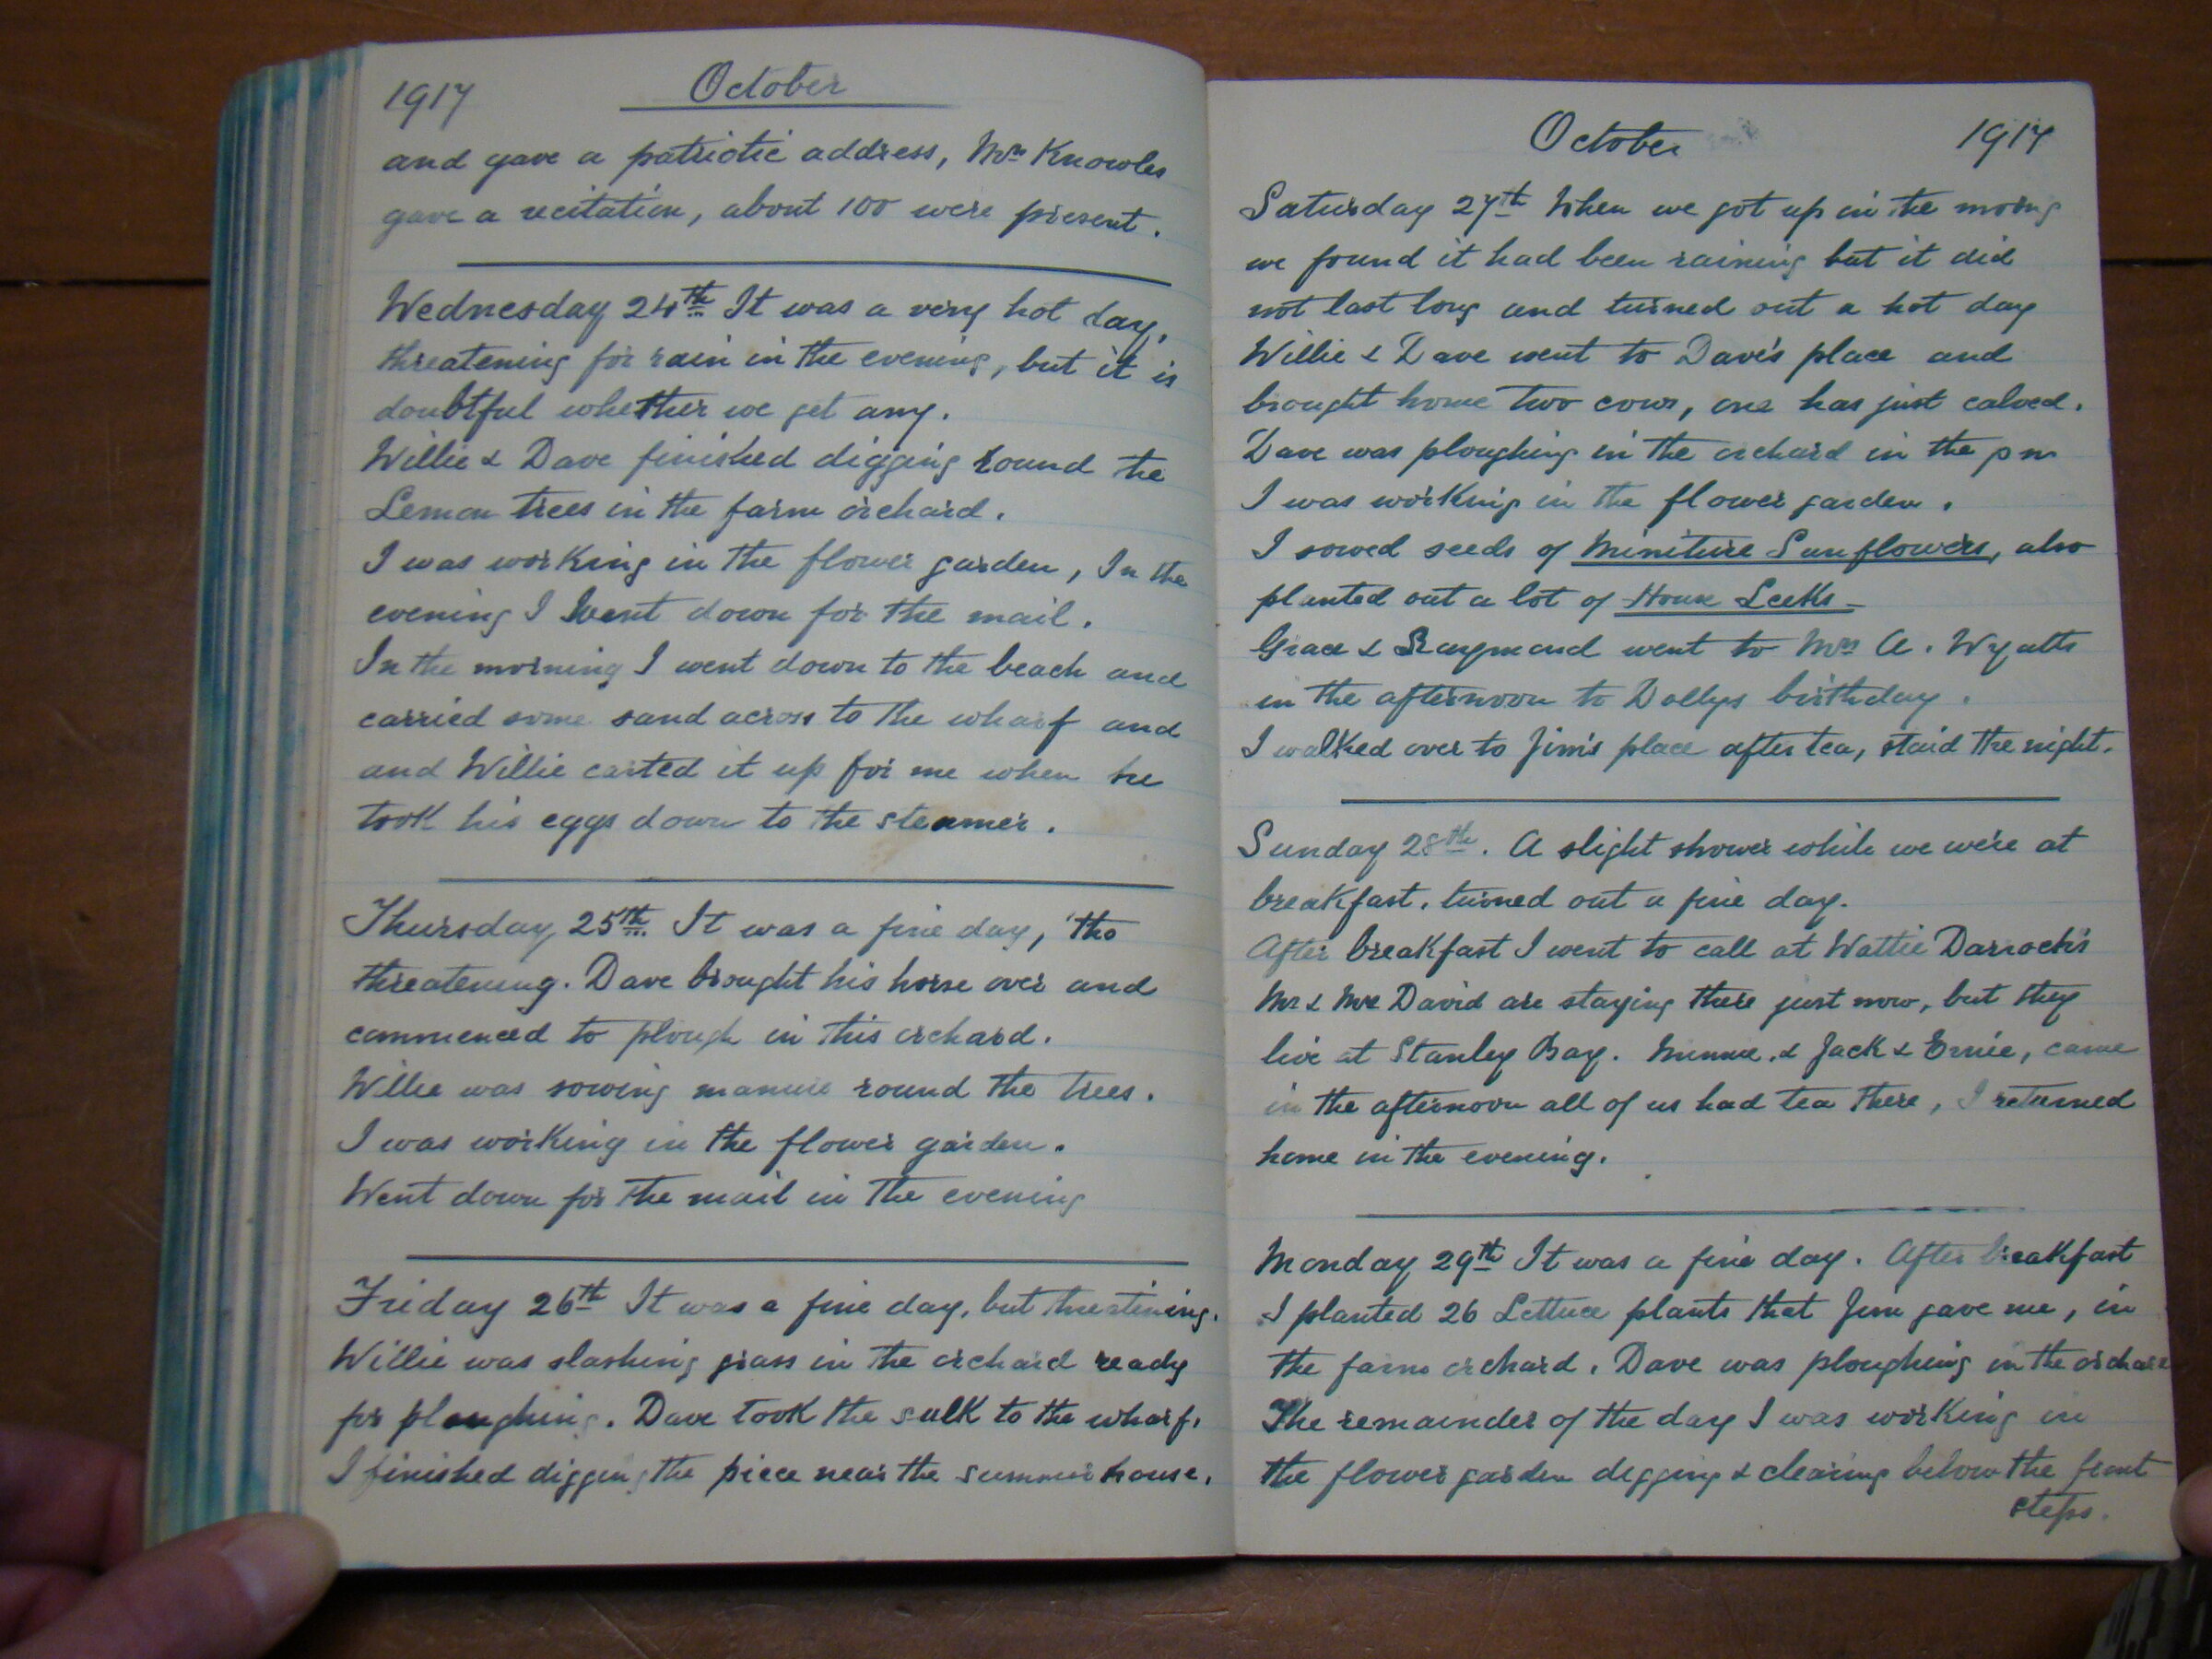 1917 October
and gave a patriotic address, Mrs Knowles
gave a recitation, about 100 were present.
Wednesday 24th It was a very hot day,
threatening for rain in the evening, but it is
doubtful whether we get any.
Willie & Dave finished digging round the
Lemon trees in the farm orchard.
I was working in the flower garden, In the
evening I went down for the mail.
In the morning I went down to the beach and
carried some sand across to the wharf and
and Willie carted it up for me when he
took his eggs down to the steamer.
Thursday 25th. It was a fine day, 'tho
threatening. Dave brought his horse over and
commenced to plough in this orchard.
Willie was sowing manure round the trees.
I was working in the flower garden.
Went down for the mail in the evening
Friday 26th It was a fine day, but threatening.
Willie was slashing grass in the orchard ready
for ploughing. Dave took the sulk to the wharf.
I finished digging the piece near the summer house.
October 1917
Saturday 27th When we got up in the morng
we found it had been raining but it did
not last long and turned out a hot day
Willie & Dave went to Dave's place and
brought home two cows, one has just calved.
Dave was ploughing in the orchard in the pm
I was working in the flower garden.
I sowed seeds of Miniture Sunflowers, also
planted out a lot of House Leeks
Grace & Raymond went to Mrs A. Wyatts
in the afternoon to Dollys birthday.
I walked over to Jim's place after tea, staid the night.
Sunday 28th. A slight shower while we were at
breakfast, turned out a fine day.
After breakfast I went to call at Wattie Darroch's
Mr & Mrs David are staying there just now, but they
live at Stanley Bay. Minnie, & Jack & Ernie, came
in the afternoon all of us had tea there, I returned
home in the evening.
Monday 29th It was a fine day. After breakfast
I planted 26 Lettuce plants that Jim gave me, in
the farm orchard. Dave was ploughing in the orchard
The remainder of the day I was working in
the flower garden digging & clearing below the front
steps.